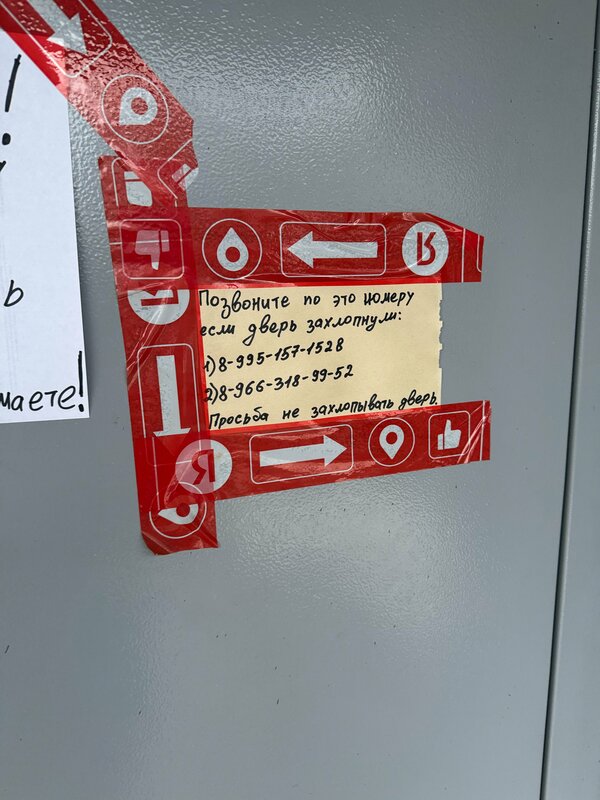 !
ь
маете!
Позвоните по это номеру
если дверь захлопнули:
1) 8-995-157-1528
2) 8-966-318-99-52
Просьба не захлопывать дверь.
Я
Я